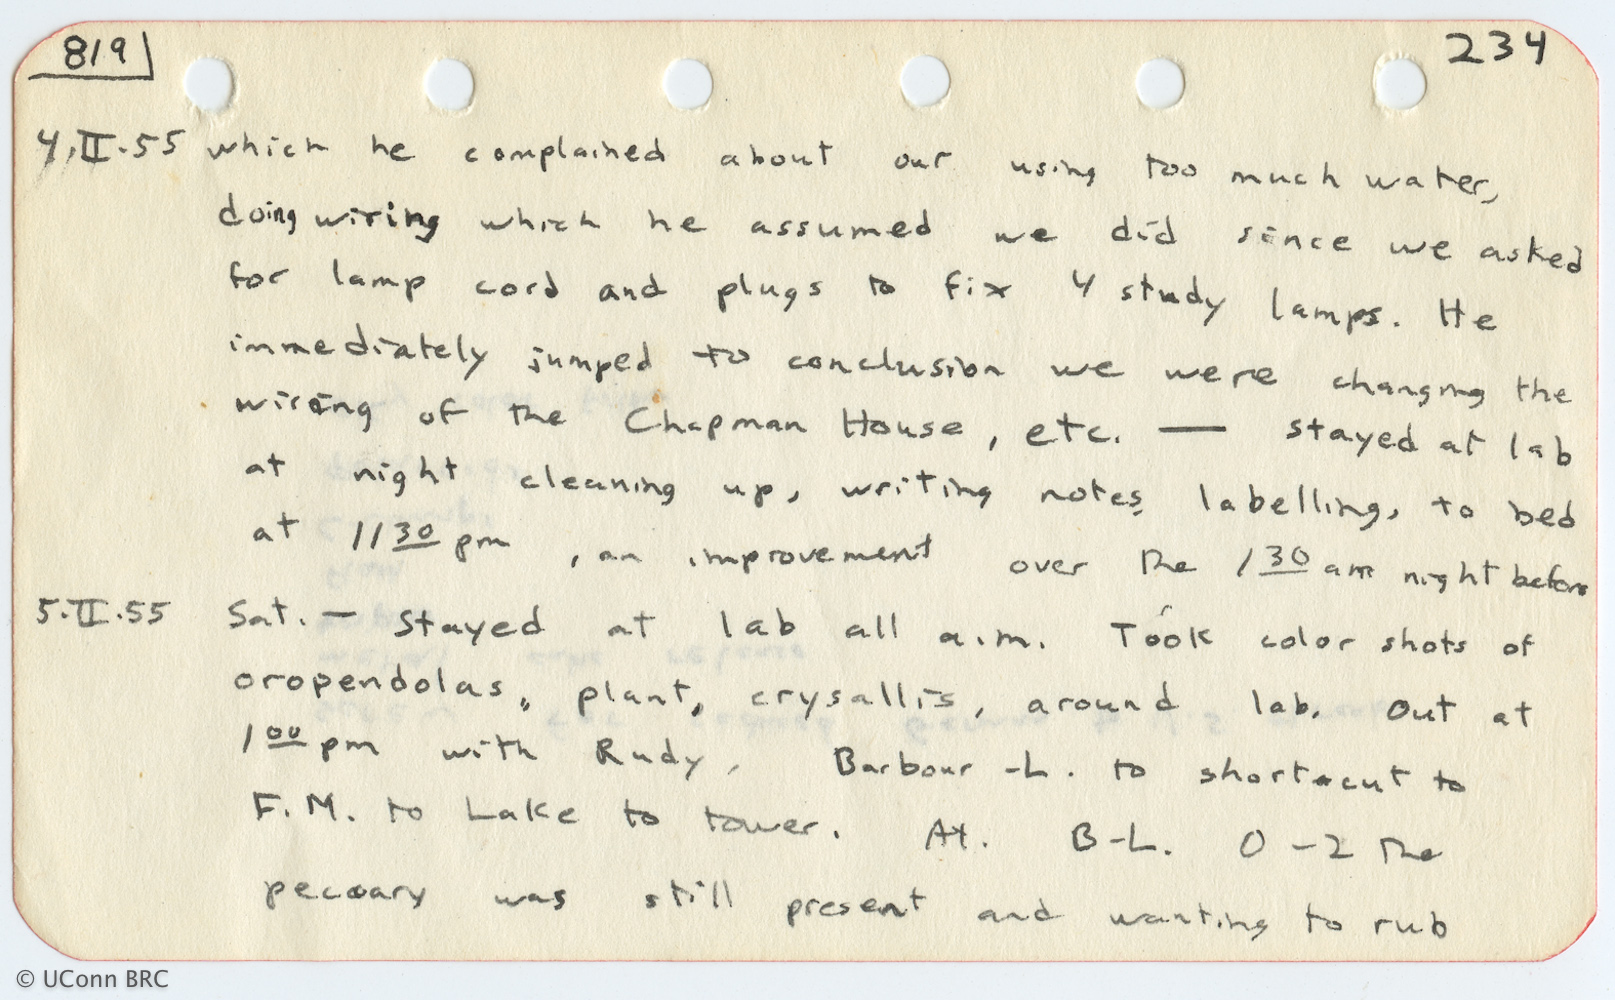 819 234
4.II.55 which he complained about our using too much water,
doing wiring which he assumed we did since we asked
for lamp cord and plugs to fix 4 study lamps. He
immediately jumped to conclusion we were changing the
wiring of the Chapman House, etc. — stayed at lab
at night cleaning up, writing notes, labelling, to bed
at 1130 pm, an improvement over the 130 am night before
5.II.55 Sat. — Stayed at lab all a.m. Took color shots of
oropendolas, plant, crysallis, around lab. Out at
100 pm with Rudy, Barbour-L. to shortcut to
F.M. to Lake to tower. At. B-L. 0-2 the
peccary was still present and wanting to rub
© UConn BRC